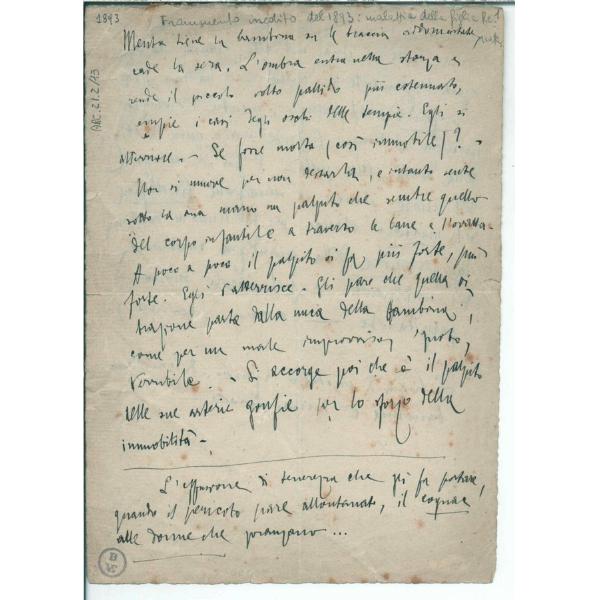 1893
Frammento inedito del 1893: malattia della figlia Re-
nata
ARC.21.2/A3
Mentre tiene la bambina su le braccia addormentata
cade la sera. L'ombra entra nella stanza e
rende il piccolo volto pallido più estenuato,
empie i cavi degli occhi delle tempie. Egli si
atterrisce. – Se fosse morta (così immobile)? –
Non si muove per non destarla, e intanto sente
sotto la sua mano un palpito che sembra quello
del corpo infantile a traverso le lane e l'ovatta.
A poco a poco il palpito si fa più forte, più
forte. Egli s'atterrisce. Gli pare che quella vi-
brazione parta dalla nuca della bambina,
come per un male improvviso, ignoto,
terribile. – Si accorge poi che è il palpito
delle sue arterie gonfie per lo sforzo della
immobilità. –
L'effusione di tenerezza che gli fa portare,
quando il pericolo pare allontanato, il cognac
alle donne che pranzano ...